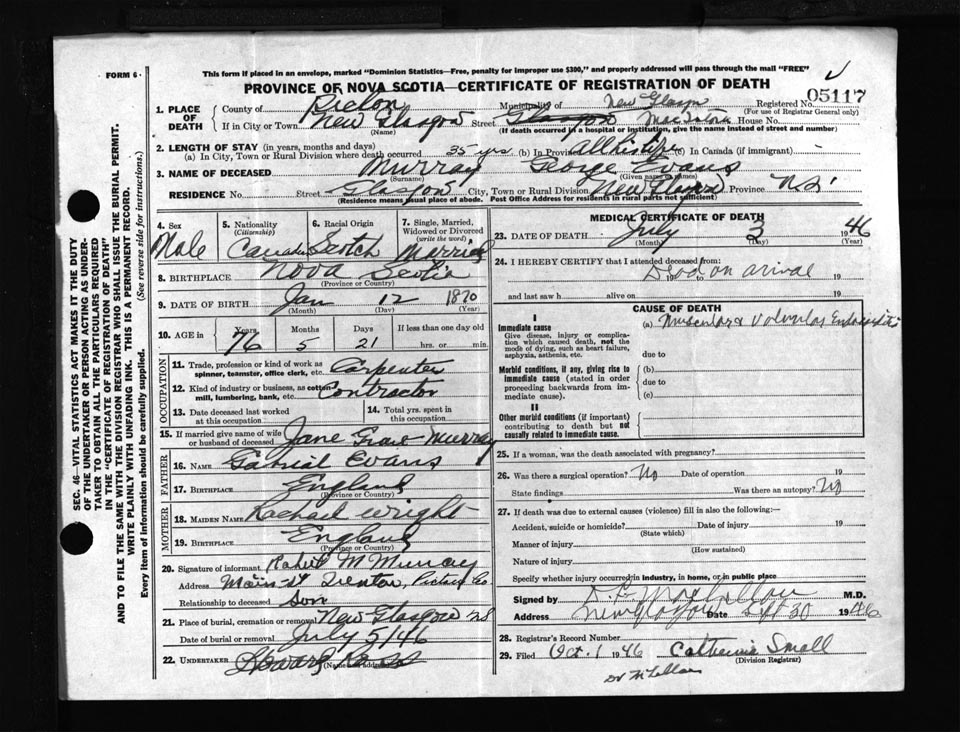 FORM 6.
This form if placed in an envelope, marked "Dominion Statistics—Free, penalty for improper use $300," and properly addressed will pass through the mail "FREE"
PROVINCE OF NOVA SCOTIA—CERTIFICATE OF REGISTRATION OF DEATH
SEC. 46—VITAL STATISTICS ACT MAKES IT THE DUTY
OF THE UNDERTAKER OR PERSON ACTING AS UNDER-
TAKER TO OBTAIN ALL THE PARTICULARS REQUIRED
IN THE "CERTIFICATE OF REGISTRATION OF DEATH"
AND TO FILE THE SAME WITH THE DIVISION REGISTRAR WHO SHALL ISSUE THE BURIAL PERMIT.
WRITE PLAINLY WITH UNFADING INK. THIS IS A PERMANENT RECORD.
Every item of information should be carefully supplied. (See reverse side for instructions.)
1. PLACE OF DEATH
County of Pictou Municipality of New Glasgow Registered No. 05117
(For use of Registrar General only)
If in City or Town New Glasgow Street House No.
(Name) (If death occurred in a hospital or institution, give the name instead of street and number)
2. LENGTH OF STAY (in years, months and days)
(a) In City, Town or Rural Division where death occurred 35 yrs (b) In Province All his life (c) In Canada (if immigrant)
3. NAME OF DECEASED Murray George Evans
(Surname) (Given name or names)
RESIDENCE No. Street City, Town or Rural Division New Glasgow Province N.S.
(Residence means usual place of abode. Post Office Address for residents in rural parts not sufficient)
4. Sex Male
5. Nationality (Citizenship) Canadian
6. Racial Origin Scotch
7. Single, Married, Widowed or Divorced (write the word) Married
8. BIRTHPLACE Nova Scotia
(Province or Country)
9. DATE OF BIRTH Jan 12 1870
(Month) (Day) (Year)
10. AGE in Years 76 Months 5 Days 21 If less than one day old hrs. or min.
OCCUPATION
11. Trade, profession or kind of work as spinner, teamster, office clerk, etc. Carpenter
12. Kind of industry or business, as cotton mill, lumbering, bank, etc. Contractor
13. Date deceased last worked at this occupation
14. Total yrs. spent in this occupation
15. If married give name of wife or husband of deceased Jane Murray
FATHER
16. NAME Gabriel Evans
17. BIRTHPLACE England
(Province or Country)
MOTHER
18. MAIDEN NAME Rachael Wright
19. BIRTHPLACE England
(Province or Country)
20. Signature of informant M Murray
Address Main St Trenton, Pictou Co
Relationship to deceased Son
21. Place of burial, cremation or removal New Glasgow NS
Date of burial or removal July 5/46
22. UNDERTAKER
(Name and address)
MEDICAL CERTIFICATE OF DEATH
23. DATE OF DEATH July 3 1946
(Month) (Day) (Year)
24. I HEREBY CERTIFY that I attended deceased from:
Dead on arival
19 to 19
and last saw h alive on 19
CAUSE OF DEATH
I
Immediate cause
Give disease, injury or complication which caused death, not the mode of dying, such as heart failure, asphyxia, asthenia, etc.
(a)
due to
Morbid conditions, if any, giving rise to immediate cause (stated in order proceeding backwards from immediate cause).
(b)
due to
(c)
II
Other morbid conditions (if important) contributing to death but not causally related to immediate cause.
25. If a woman, was the death associated with pregnancy?
26. Was there a surgical operation? No Date of operation 19
State findings Was there an autopsy? No
27. If death was due to external causes (violence) fill in also the following:—
Accident, suicide or homicide? Date of injury 19
(State which)
Manner of injury
(How sustained)
Nature of injury
Specify whether injury occurred in industry, in home, or in public place
Signed by M.D.
Address New Glasgow Date Sept 30 1946
28. Registrar's Record Number
29. Filed Oct. 1 1946 Catherine Small
(Division Registrar)
Dr McLellan